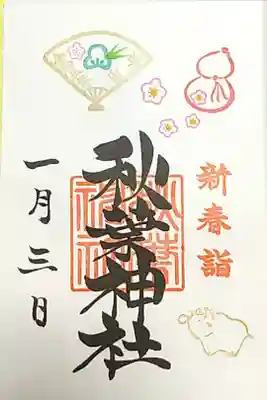 新春詣
秋葉神社
一月三日